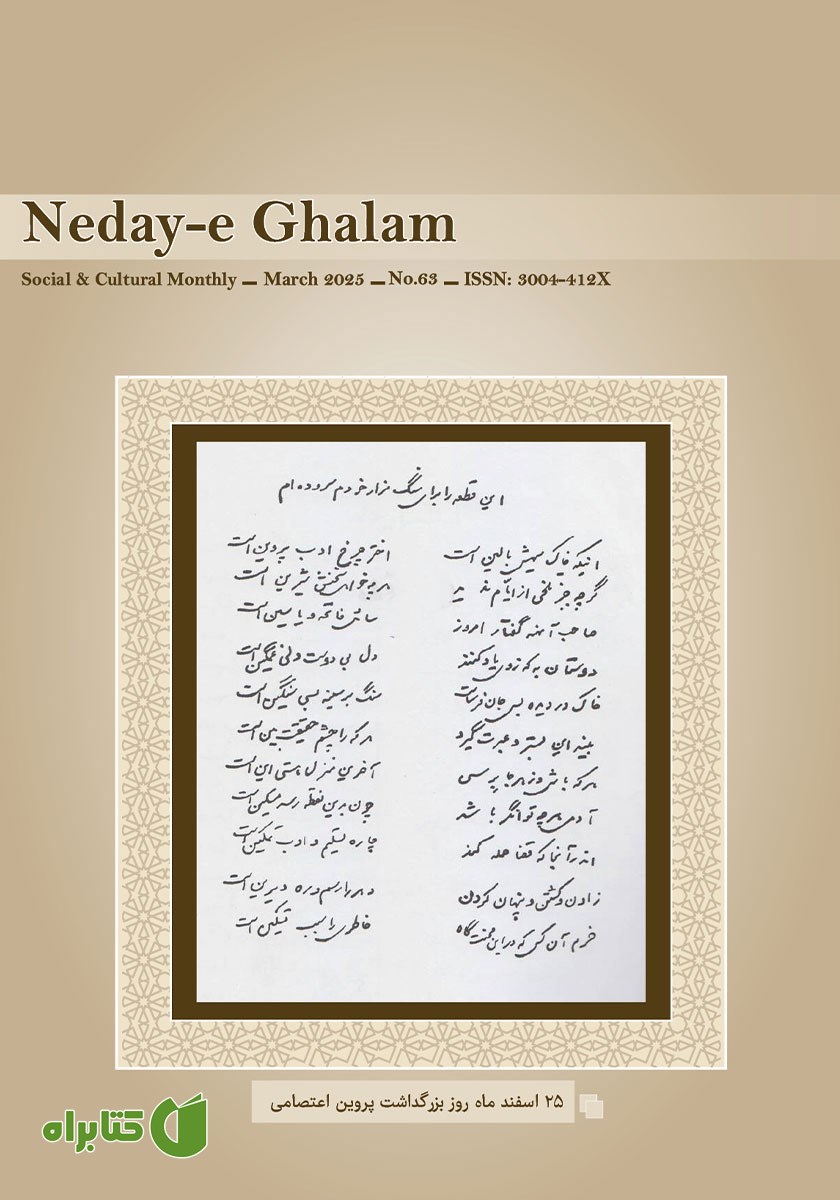 Neday-e Ghalam
Social & Cultural Monthly – March 2025 – No.63 – ISSN: 3004-412X
این قطعه را برای سنگ مزار خودم سروده ام
اینکه خاک سیهش بالین است اختر چرخ ادب پروین است
گرچه جز تلخی از ایام ندید هر چه خواهی سخنش شیرین است
صاحب آنهمه گفتار امروز سائل فاتحه و یاسین است
دوستان به که ز وی یاد کنند دل بی دوست دلی غمگین است
خاک در دیده بسی جان فرساست سنگ بر سینه بسی سنگین است
بیند این بستر و عبرت گیرد هر که را چشم حقیقت بین است
هر که باشی و ز هر جا برسی آخرین منزل هستی این است
آدمی هر چه توانگر باشد چون بدین نقطه رسد مسکین است
اندر آنجا که قضا حمله کند چاره تسلیم و ادب تمکین است
زادن و کشتن و پنهان کردن دهر را رسم و ره دیرین است
خرم آن کس که در این محنت گاه خاطری را سبب تسکین است
۲۵ اسفند ماه روز بزرگداشت پروین اعتصامی
کتابراه